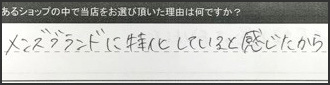 あるショップの中で当店をお選び頂いた理由は何ですか？
メンズブランドに特化していると感じたから